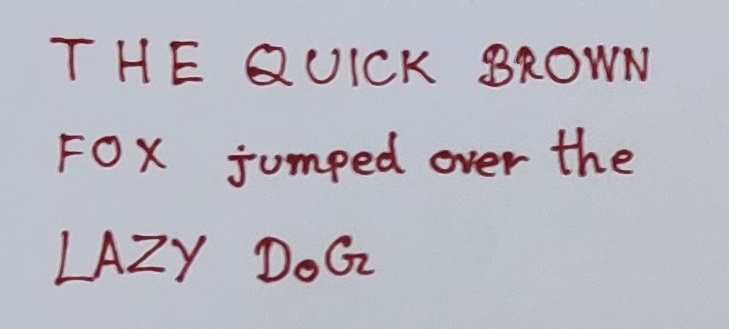 THE QUICK BROWN
FOX jumped over the
LAZY DoG